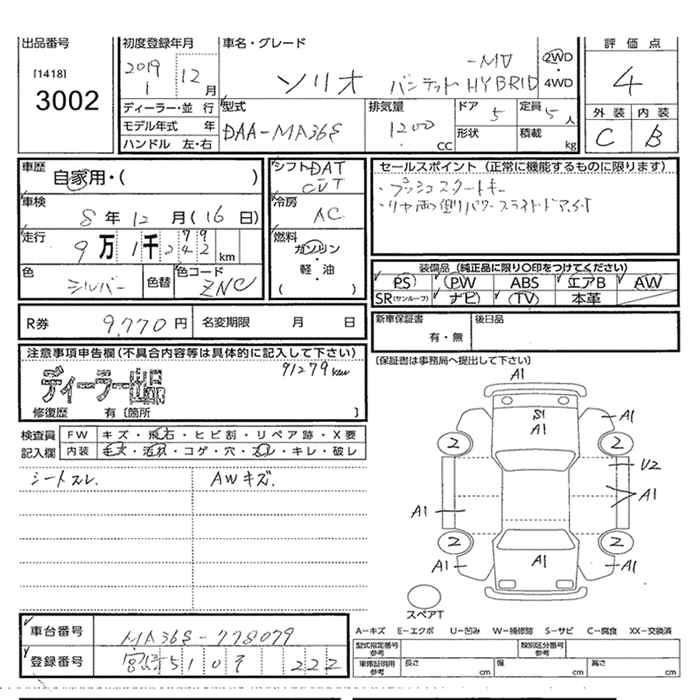 出品番号
[1418]
3002
初度登録年月
2019
1 12月
車名・グレード
ソリオ バンディット HYBRID
-MV
2WD
・
4WD
評価点
4
外装 内装
C B
ディーラー・並行
モデル年式 年
ハンドル 左・右
型式
DAA-MA36S
排気量
1200
.CC
ドア 5
形状
定員 5人
積載 kg
車歴
自家用・( )
車検
8年 12月(16日)
走行
9万1千2 km
色
シルバー
色替
色コード
ZNC
シフト DAT
CVT
冷房
AC
燃料
ガソリン
・
軽・油
( )
セールスポイント (正常に機能するものに限ります)
・プッシュスタートキー
・リヤ両側パワースライドドア
装備品 (純正品に限り〇印をつけてください)
PS PW ABS エアB AW
SR(サンルーフ) ナビ TV 本革
R券 9,770円 名変期限 月 日
新車保証書
有・無
後日品
(保証書は事務局へ提出して下さい)
注意事項申告欄(不具合内容等は具体的に記入して下さい)
91279km
ディーラー
修復歴 有 〔箇所 〕
検査員
記入欄
FW キズ・飛石・ヒビ割・リペア跡・X要
内装 毛犬・汚れ・コゲ・穴・スレ・キレ・破レ
シートスレ.
AWキズ.
A1
S1
A1
A1
2
2
U2
A1
A1
2
2
A1
A1
A1
スペアT
車台番号 MA36S-778079
登録番号 宮崎 510 そ 222
A-キズ E-エクボ U-凹み W-補修跡 S-サビ C-腐食 XX-交換済
型式指定番号
参考
類別区分番号
参考
車庫証明用
参考
長さ cm
幅 cm
高さ cm